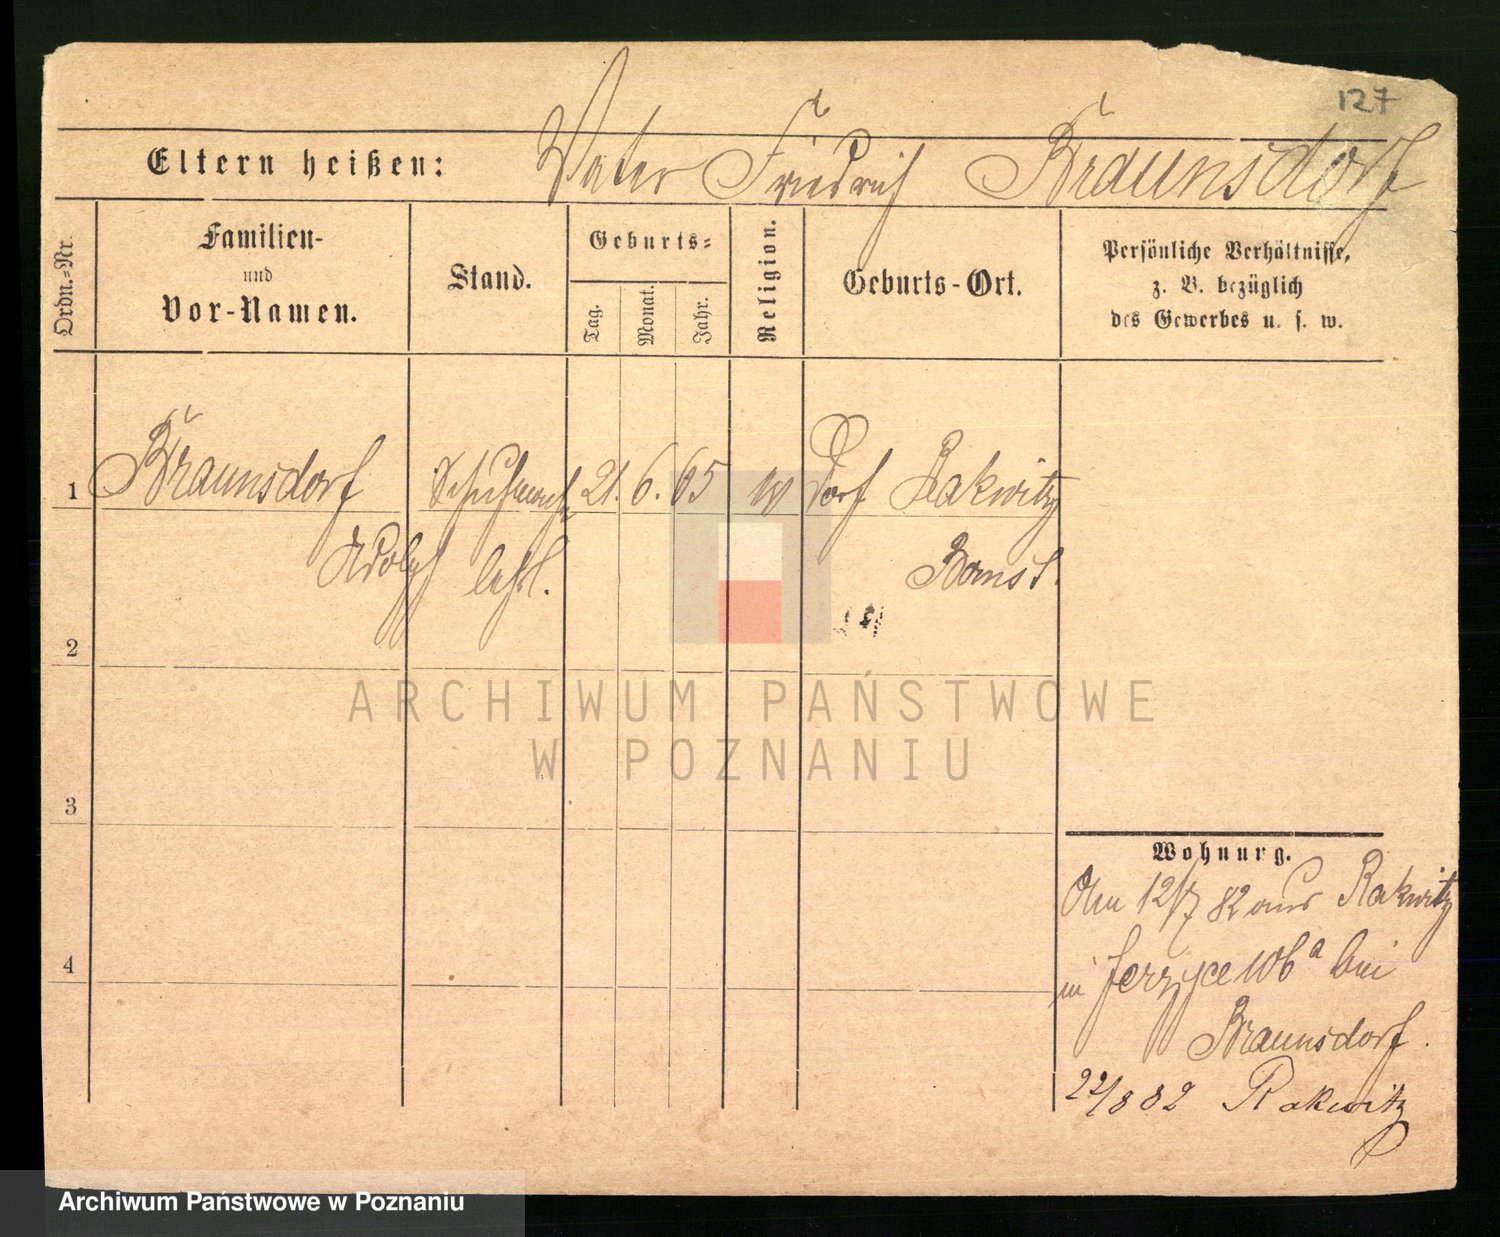 127
Eltern heißen: Vater Friedrich Braunsdorf
Ordn.-Nr.
Familien-
und
Vor-Namen.
Stand.
Geburts-
Tag.
Monat.
Jahr.
Religion.
Geburts-Ort.
Persönliche Verhältnisse,
z. B. bezüglich
des Gewerbes u. s. w.
1 Braunsdorf Schuhmach 21. 6. 65 Dorf Rakwitz
Adolf lehrl. Bomst.
2
3
4
ARCHIWUM PAŃSTWOWE
W POZNANIU
Wohnung.
Am 12/7 82 aus Rakwitz
in Jerzyce 10b a bei
Braunsdorf.
22/8 82 Rakwitz
Archiwum Państwowe w Poznaniu